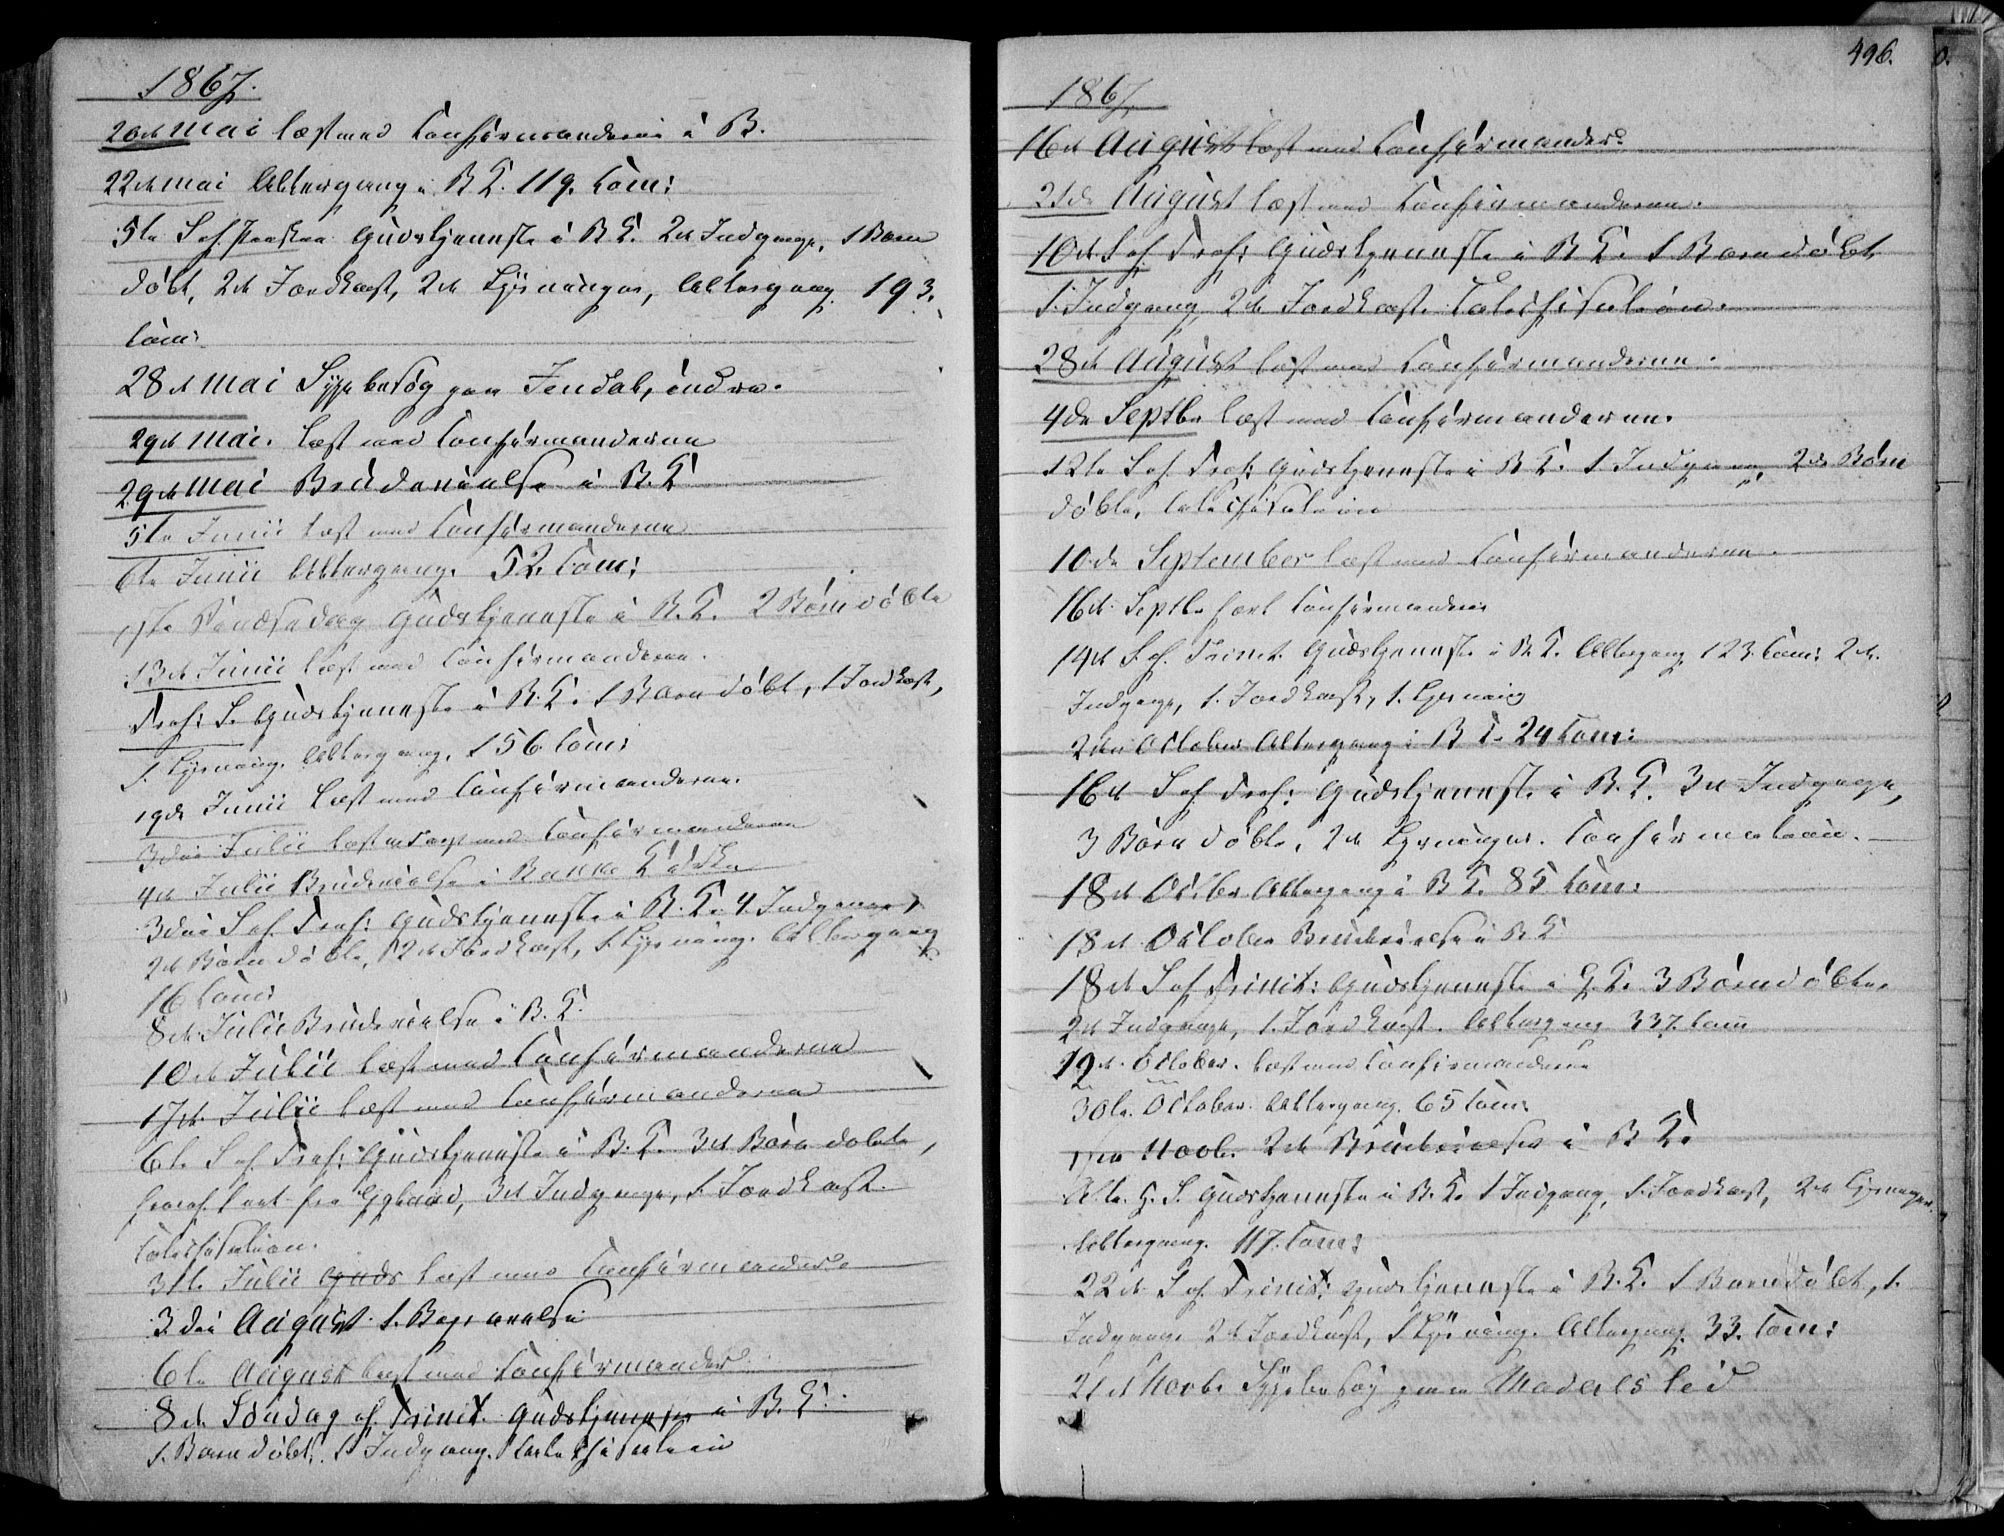 1867.
20de Mai læst med Confirmanderne i B.
22de Mai Altergang i B K. 119. Com:
5te S ef. Paaske Gudstjeneste i B K. 2de Indgange, 1 Barn
døbt, 2de Jordkast, 2de Lysninger, Altergang. 193.
Com:
28de Mai Sygebesøg paa indre.
29de Mai. læst med Confirmanderne
29de Mai Brudevielse i B. K
5te Junii læst med Confirmanderne
6te Junii Altergang. 52. Com:
Pindsedag Gudstjeneste i B. K. 2 Børn døbte
13de Junii læst med Confirmanderne.
Tref: S. Gudstjeneste i B. K. 1 Barn døbt, 1 Jordkast,
1. Lysning. Altergang. 156 Com:
19de Junii læst med Confirmanderne.
3die Julii læst med Confirmanderne
4de Julii Brudevielse i Kirke
3die S ef. Tref: Gudstjeneste i B. K. 4 Indgange,
2de Børn døbte, 2de Jordkast, 1. Lysning. Altergang
16 Com:
8de Julii Brudevielse i B. K.
10de Julii læst med Confirmanderne
17de Julii læst med Confirmanderne
6te S ef. Tref: Gudstjeneste i B. K. 3de Børn døbte,
3de Indgange, 1. Jordkast.
Catechisation.
31te Julii Guds læst med Confirmander.
3die August 1. Begravelse
6te August læst med Confirmander.
8de Søndag ef. Trinit. Gudstjeneste i B. K.
1. Barn døbt. 1. Indgang. Catechisation
496.
1867
16de August læst med Confirmander.
21de August læst med Confirmanderne.
10de S ef. Tref: Gudstjeneste i B K. 1 Barn døbt
1. Indgang, 2de Jordkast. Catechisation.
28de August læst med Confirmanderne.
4de Septbr læst med Confirmanderne.
12te S ef. Tref: Gudstjeneste i B K. 1 Indgang, 2de Børn
døbte, Catechisation
10de September læst med Confirmanderne.
16de Septbr Confirmander
14de S. ef. Trinit. Gudstjeneste i B K. Altergang 123 Com: 2de
Indgange, 1. Jordkast, 1. Lysning
2den October Altergang i B K. 24 Com:
16de S ef Tref: Gudstjeneste i B. K. 3de Indgange,
3 Børn døbte, 2de Lysninger. Confirmation.
18de Octbr Altergang i B K. 85 Com:
18de October Brudevielse i B K
18de S ef Trinit: Gudstjeneste i G K. 3 Børn døbte,
2de Indgange, 1. Jordkast. Altergang 337. Com
19de October. læst med Confirmanderne
30te October. Altergang. 65 Com:
Novb. 2de Brudevielser i B K.
Alle H. S. Gudstjeneste i B. K. 1 Indgang, 1. Jordkast, 2de Lysninger.
Altergang. 117. Com:
22de S ef. Trinit: Gudstjeneste i B. K. 1 Barn døbt, 1.
Indgang 2de Jordkast, 1 Lysning. Altergang. 33. Com:
21de Novbr Sygebesøg paa Modalslid